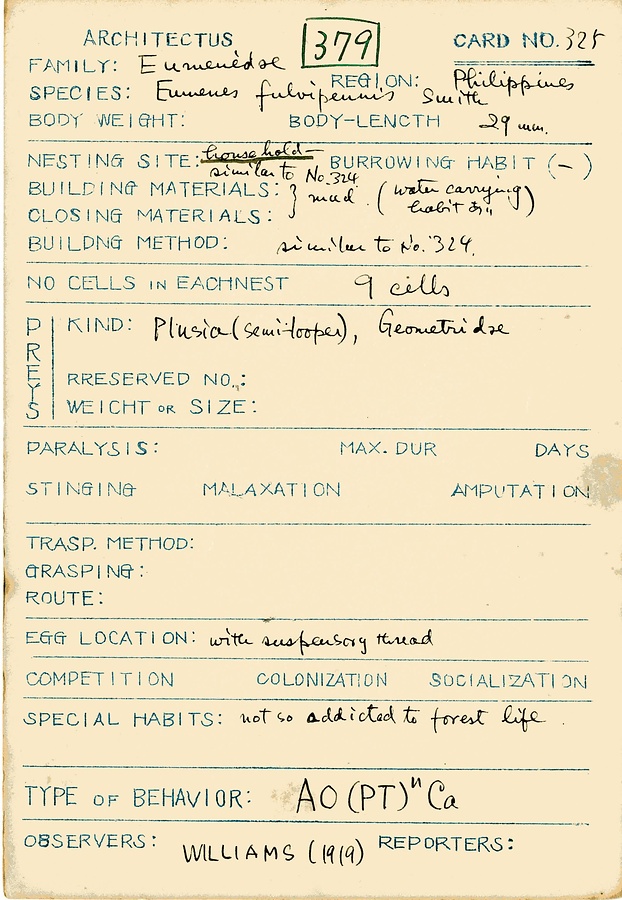 ARCHITECTUS 379 CARD NO. 325
FAMILY: Eumenidae REGION: Philippines
SPECIES: Eumenes fulvipennis Smith
BODY WEIGHT: BODY-LENCTH 29 mm.
NESTING SITE: household— BURROWING HABIT (−)
similar to No. 324
BUILDING MATERIALS: } mud. (water carrying
CLOSING MATERIALS: habit)
BUILDNG METHOD: similar to No. 324.
NO CELLS IN EACHNEST 9 cells
PREYS
KIND: Plusia (semi-looper), Geometridae
RRESERVED NO.:
WEIGHT OR SIZE:
PARALYSIS: MAX. DUR DAYS
STINGING MALAXATION AMPUTATION
TRASP. METHOD:
GRASPING:
ROUTE:
EGG LOCATION: with suspensory thread
COMPETITION COLONIZATION SOCIALIZATION
SPECIAL HABITS: not so addicted to forest life.
TYPE OF BEHAVIOR: AO (PT)ⁿ Ca
OBSERVERS: WILLIAMS (1919) REPORTERS: